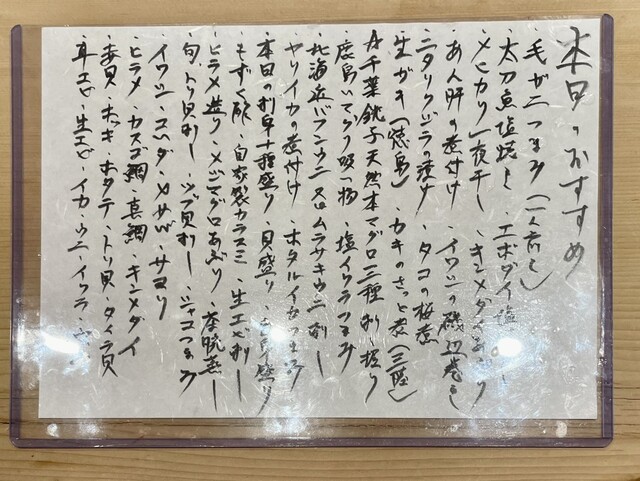 本日のおすすめ
・毛ガニつまみ(一人前も)
・太刀魚塩焼も ・エボダイ塩
・メヒカリ一夜干し ・キンメダイあぶり
・あん肝の煮付け ・イワシの磯辺巻も
・ニタリクジラの漬け ・タコの桜煮
・生ガキ(徳島) ・カキのさっと煮(三陸)
A千葉銚子天然本マグロ二種 刺し 握り
・鹿島ハマグリ吸い物 ・塩イクラつまみ
・北海道バフンウニ 又は ムラサキウニ刺し
・ヤリイカの煮付け ・ホタルイカつまみ
本日の刺身十種盛り ・貝盛り 盛り
・もずく酢 ・自家製カラスミ ・生エビ刺し
・ヒラメ造り ・メジマグロあぶり ・茶碗蒸し
・旬トリ貝刺し ・ツブ貝刺し ・シャコつまみ
・イワシ ・コハダ ・〆サバ ・サヨリ
・ヒラメ ・カスゴ鯛 ・真鯛 ・キンメダイ
・赤貝 ・ホッキ ・ホタテ ・トリ貝 ・タイラ貝
・車エビ ・生エビ ・イカ ・ウニ ・イクラ